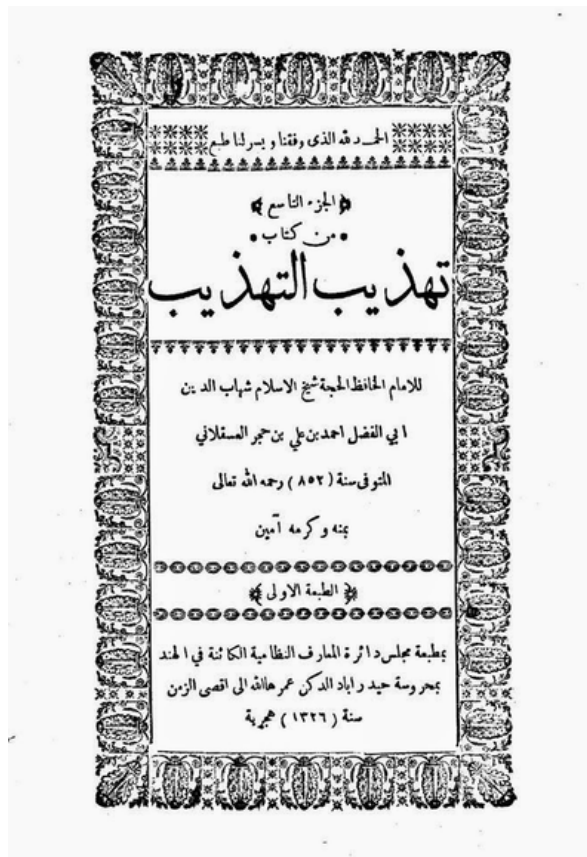 الحمد لله الذى وفقنا ويسر لنا طبع
الجزء التاسع
من كتاب
تهذيب التهذيب
للامام الحافظ الحجة شيخ الاسلام شهاب الدين
ابي الفضل احمد بن علي بن حجر العسقلاني
المتوفى سنة (٨٥٢) رحمه الله تعالى
بمنه وكرمه آمين
الطبعة الاولى
بمطبعة مجلس دائرة المعارف النظامية الكائنة في الهند
بمحروسة حيدراباد الدكن عمرها الله الى اقصى الزمن
سنة (١٣٢٦) هجرية